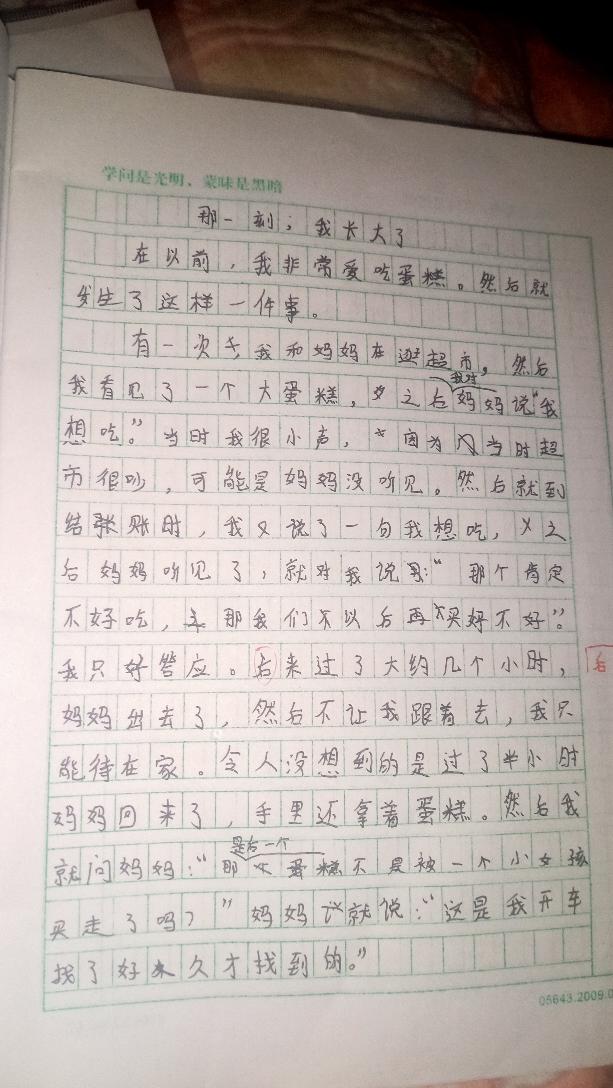 学问是光明、蒙昧是黑暗
那一刻，我长大了
在以前，我非常爱吃蛋糕。然后就
发生了这样一件事。
有一次，我和妈妈在逛超市，然后
我看见了一个大蛋糕，之后我对妈妈说“我
想吃。”当时我很小声，因为当时超
市很吵，可能是妈妈没听见。然后就到
结账时，我又说了一句我想吃，之
后妈妈听见了，就对我说：“那个肯定
不好吃，那我们以后再买好不好”。
我只好答应。后来过了大约几个小时，
后
妈妈出去了，然后不让我跟着去，我只
能待在家。令人没想到的是过了半小时
妈妈回来了，手里还拿着蛋糕。然后我
就问妈妈：“那是后一个蛋糕不是被一个小女孩
买走了吗？”妈妈就说：“这是我开车
拐了好久才找到的。”
05643.2009.0